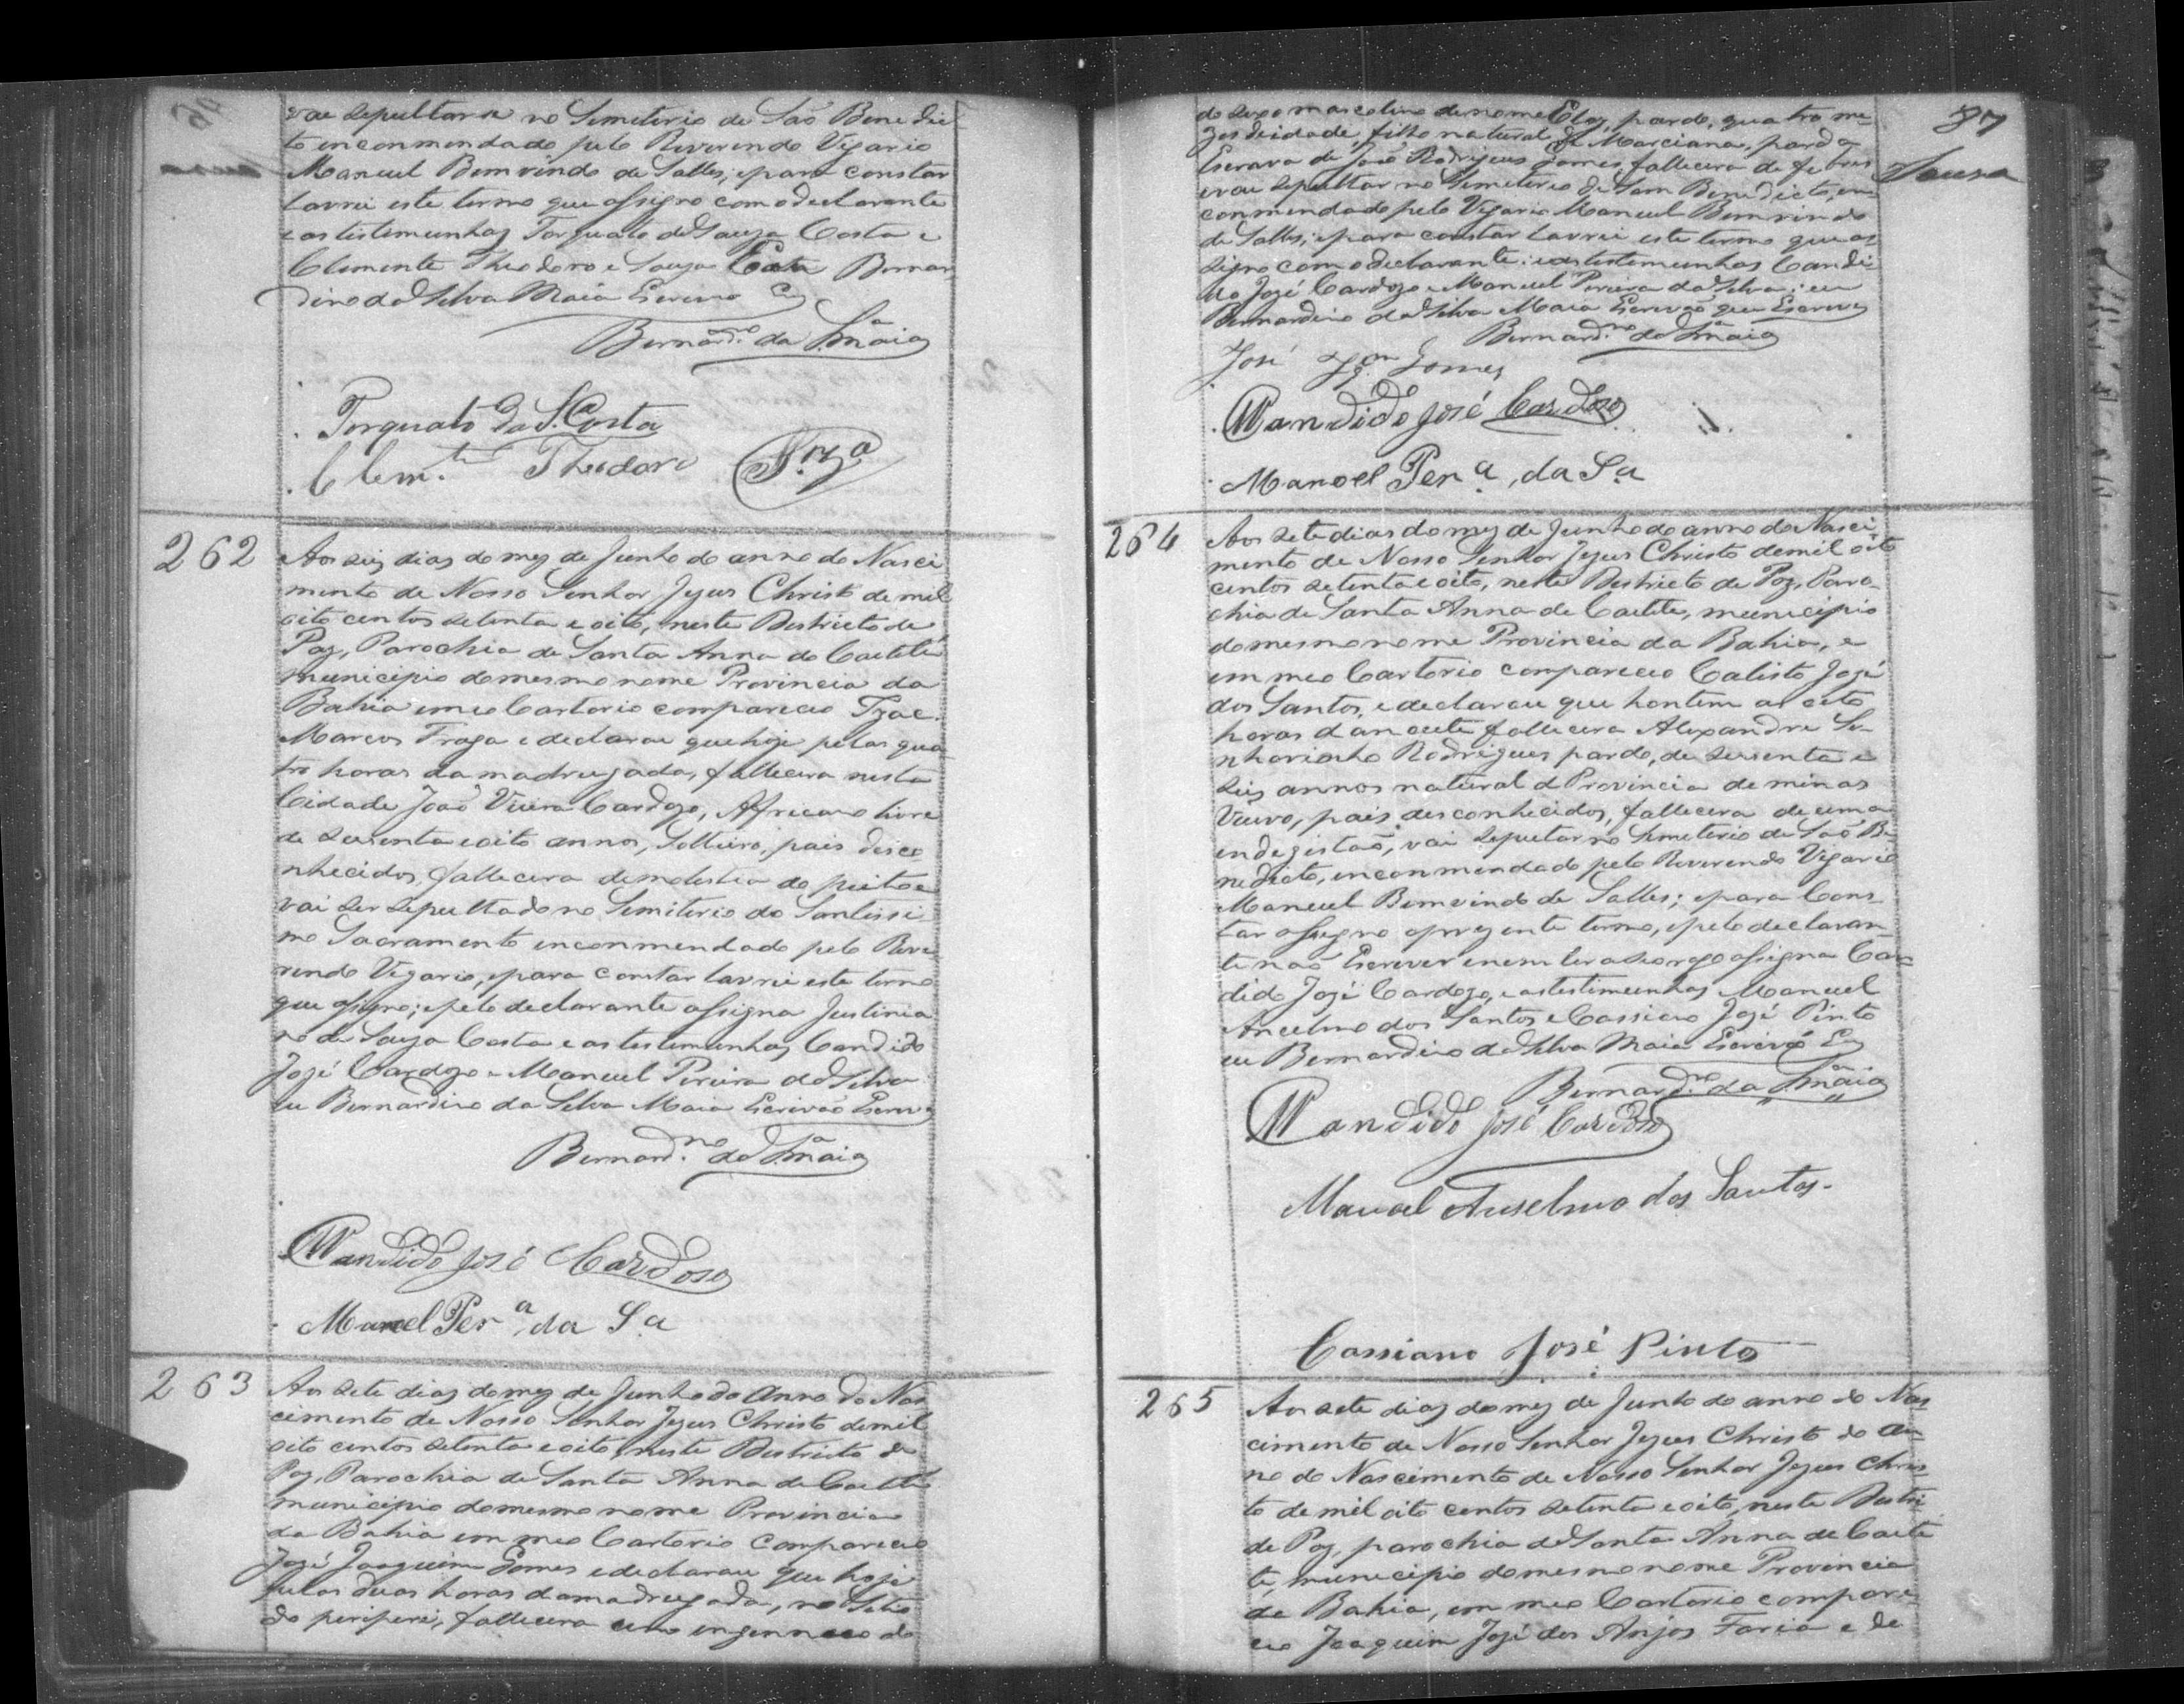 vae sepultar se no Semiterio de São Benedic
to enconmendado pelo Reverendo Vigario
Manuel Bemvindo de Salles; epara constar
lavrei este termo que assigno com o declarante
e as testimunhas Torquato de Souza Costa e
Clemente Theodoro e Souza Costa Bernar
dino da Silva Maia Escrivão
Bernard.no da S.a Maia
Torquato da S. Costa
Clem.te Theodoro
262
Aos seis dias do mez de Junho do anno do Nasci
mento de Nosso Senhor Jezus Christo de mil
oito centos setenta e oito, neste Destricto de
Paz, Parochia de Santa Anna do Caetité
municipio domesmo nome Provincia da
Bahia emeo Cartorio compareceo Izac
Marcos Fraga e declarou que hoje pelas qua
tro horas da madrugada, fallecera nesta
Cidade João Vieira Cardozo, Affricano livre
de sessenta eoito annos, Solteiro, pais desco
nhecidos, fallecera demolestia do peito e
vai ser sepultado no Semiterio do Santissi
mo Sacramento enconmendado pelo Reve
rendo Vigario, epara constar lavrei este termo
que assigno; epelo declarante assigna Justinia
no de Souza Costa e as testemunhas Candido
Jozé Cardozo e Manuel Pereira da Silva
eu Bernardino da Silva Maia Escrivão Escrevy
Bernard.no da S.a Maia
Candido José Cardoso
Manoel Per.a da S.a
263
Aos sete dias do mez de Junho do Anno do Nas
cimento de Nosso Senhor Jezus Christo demil
oito centos setenta e oito, neste Destricto de
Paz, Parochia de Santa Anna de Caetité
municipio domesmo nome Provincia
da Bahia em meo Cartorio compareceo
Jozé Joaquim Gomes edeclarou que hoje
pelas duas horas damadrugada, no Sitio
do periperi, fallecera um ingennuo do
87
Souza
do sexo mascolino de nome Eloy, pardo, quatro me
zes deidade, filho natural de Marciana, parda
Escrava de João Rodrigues Gomes, fallecera de febres
evae sepultar no Semiterio de Sam Benedicto, en
conmendado pelo Vigario Manuel Bemvindo
de Salles; epara constar lavrei este termo que as
signo com o declarante: e as testemunhas Candi
do Jozé Cardozo e Manuel Pereira da Silva; eu
Bernardino da Silva Maia Escrivão que Escrevy
Bernard.no da S.a Maia
José Gomes
Candido José Cardoso
Manoel Per.a da S.a
264
Aos sete dias do mez de Junho do anno do Nasci
mento de Nosso Senhor Jezus Christo demil oito
centos setenta e oito, neste Destricto de Paz, Paro
chia de Santa Anna de Caetite, municipio
domesmo nome Provincia da Bahia, e
em meo Cartorio compareceo Calisto Jozé
dos Santos, edeclarou que hontem as oito
horas danoute fallecera Alexandre Se
nhorinho Rodrigues pardo, de sessenta e
seis annos natural d Provincia de minas
Viuvo, pais desconhecidos, fallecera de uma
endegistão, vai sepultar no Semiterio de São Be
nedicto, enconmendado pelo Reverendo Vigario
Manuel Bemvindo de Salles; epara Cons
tar assigno oprezente termo, epelo declaran
te não Escrever enem ler aseo rogo assigna Can
dido Jozé Cardozo, e as testimunhas Manuel
Ancelmo dos Santos e Cassiano Jozé Pinto
eu Bernardino da Silva Maia Escrivão
Bernard.no da S.a Maia
Candido José Cardoso
Manoel Anselmo dos Santos.
Cassiano José Pinto
265
Aos sete dias do mez de Junho do anno do Nas
cimento de Nosso Senhor Jezus Christo do an
no do Nascimento de Nosso Senhor Jezus Chris
to de mil oito centos setenta e oito, neste Destri
de Paz, parochia de Santa Anna de Caeti
té, municipio domesmo nome Provincia
da Bahia, em meo Cartorio compare
ceo Joaquim Jozé dos Anjos Faria e de